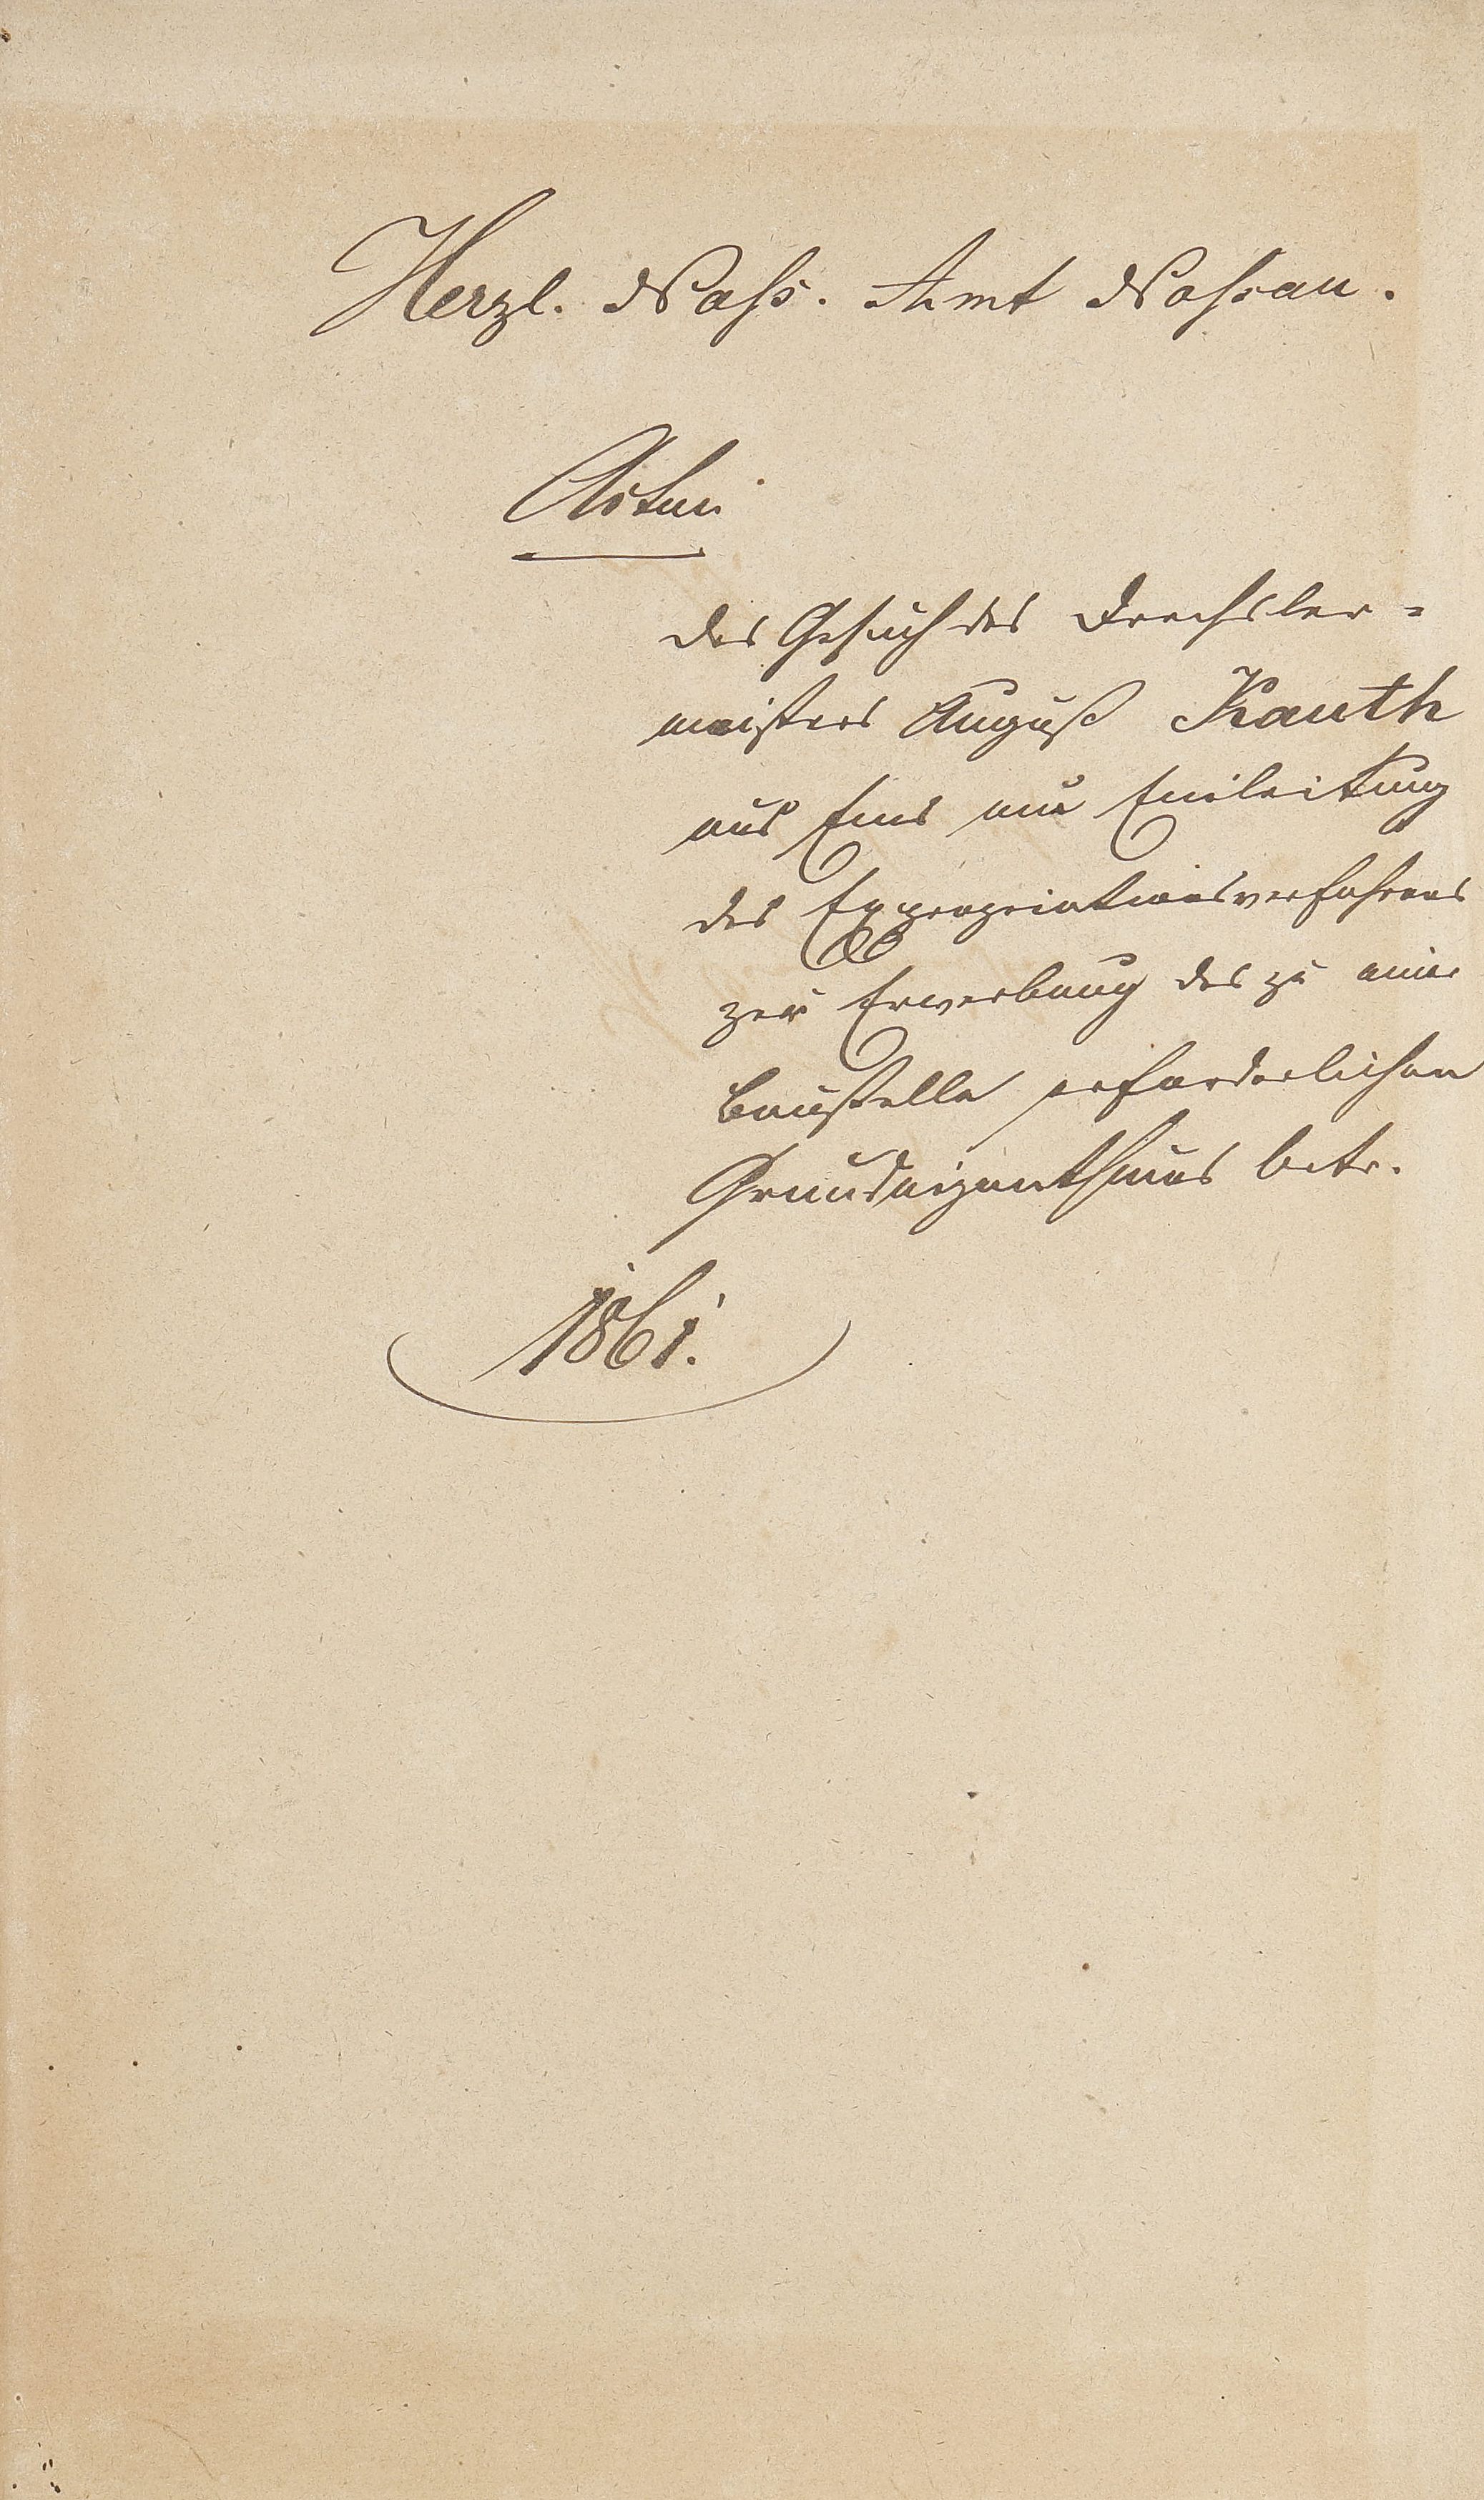 Herzl. Nass. Amt Nassau.
Acten
das Gesuch des Drechsler=
meisters August Kauth
aus Ems um Einleitung
des Expropriationsverfahrens
zur Erwerbung des zu einer
Baustelle erforderlichen
Grundeigenthums betr.
1861.